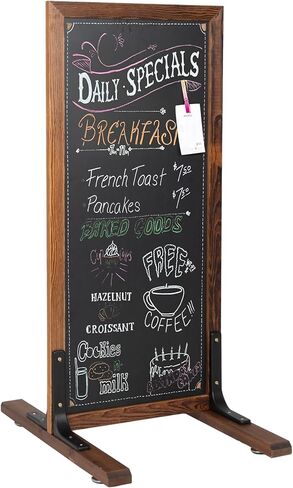 DAILY·SPECIALS
BREAKFAST
French Toast $7.50
Pancakes $7.50
BAKED GOODS
FREE
COFFEE!!!
HAZELNUT
&
CROISSANT
Cookies
milk